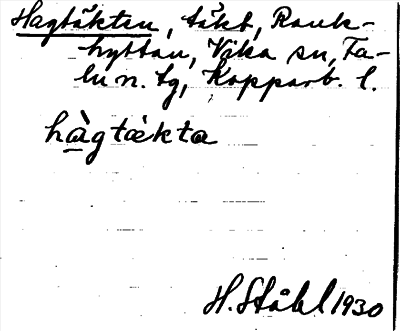 Hagtäkten, täkt, Rank-
hyttan, Vika sn, Fa-
lu n. tg, Kopparb. l.
hàgtäkta
H. Ståhl 1930